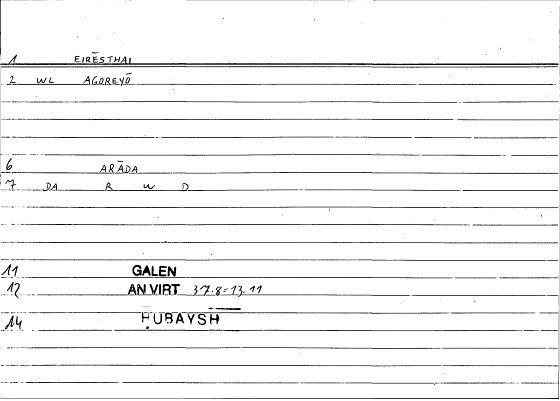 1 EIRĒSTHAI
2 WL AGOREYŌ
6 ARĀDA
7 DA R W D
11 GALEN
12 AN VIRT 37.8=13.11
14 ḤUBAYSH